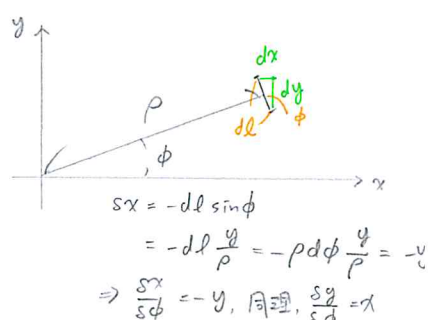 y
dx
ρ
dy
dl
φ
φ
x
δx = -dl sinφ
= -dl y/ρ = -ρdφ y/ρ = -y
⇒ δx/δφ = -y, 同理, δy/δφ = x